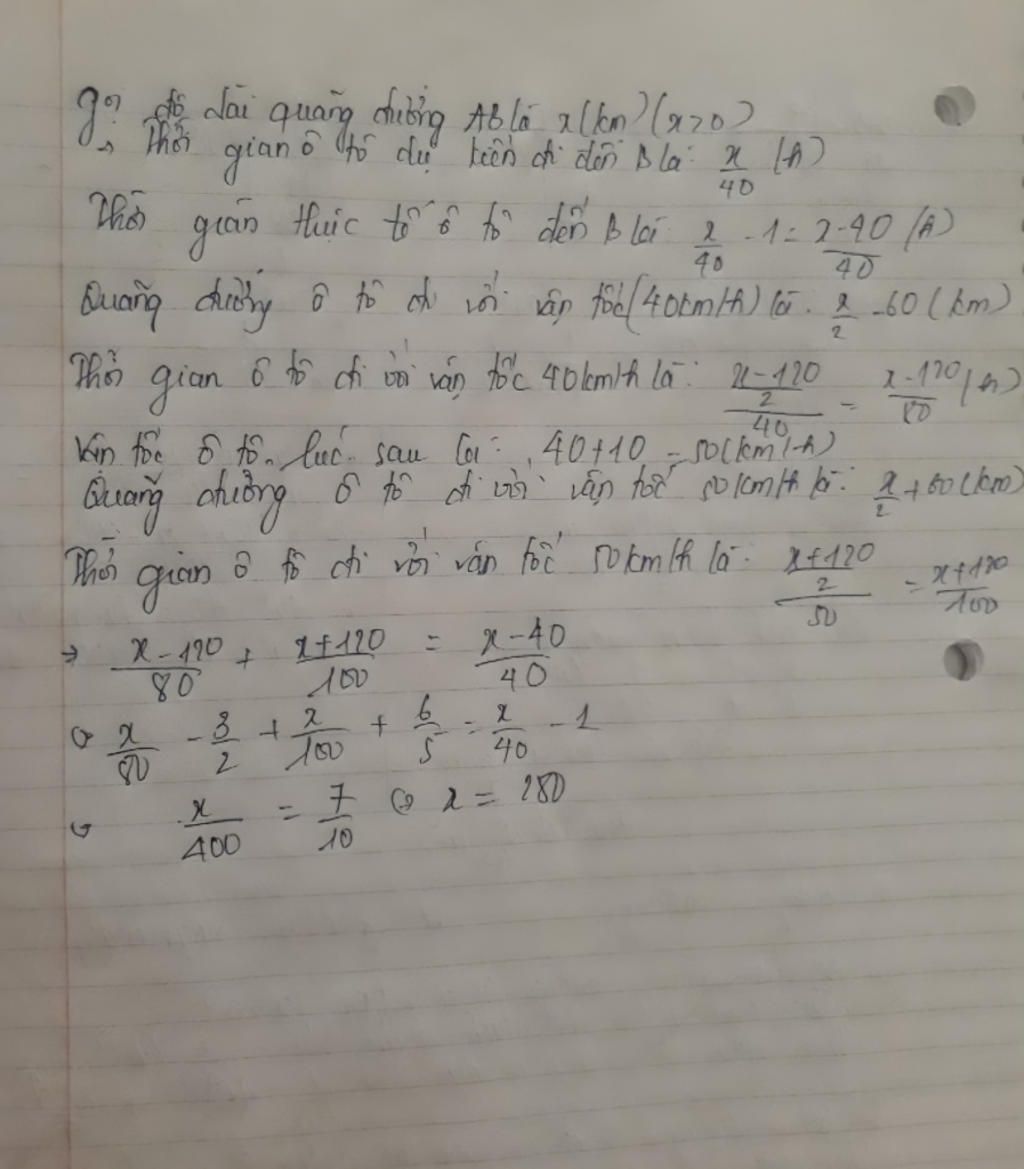 Gọi độ dài quãng đường AB là x (km) (x>0)
→ Thời gian ô tô dự kiến đi đến B là: x/40 (h)
Thời gian thực tế ô tô đến B là: x/40 - 1 = x-40/40 (h)
Quãng đường ô tô đi với vận tốc (40km/h) là: x/2 - 60 (km)
Thời gian ô tô đi với vận tốc 40km/h là: ((x-120)/2)/40 = x-120/80 (h)
Vận tốc ô tô lúc sau là: 40+10 = 50 (km/h)
Quãng đường ô tô đi với vận tốc 50km/h là: x/2 + 60 (km)
Thời gian ô tô đi với vận tốc 50km/h là: ((x+120)/2)/50 = x+120/100
→ x-120/80 + x+120/100 = x-40/40
⇔ x/80 - 3/2 + x/100 + 6/5 = x/40 - 1
⇔ x/400 = 7/10 ⇔ x = 280